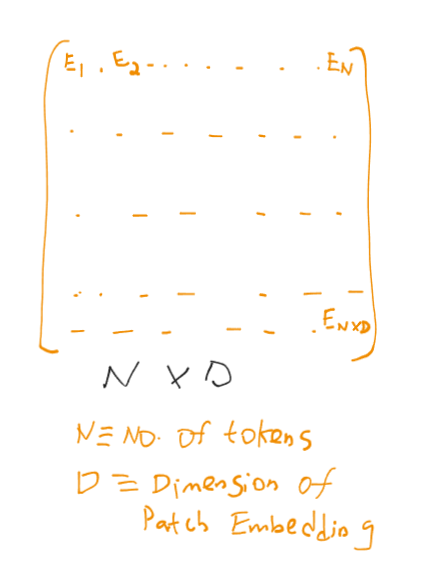 E1 . E2 - . . . . - . . EN
. - - - - - .
. - - - - -
. . - - - - -
- - - - - . ENXD
N X D
N ≡ NO. of tokens
D ≡ Dimension of
Patch Embedding